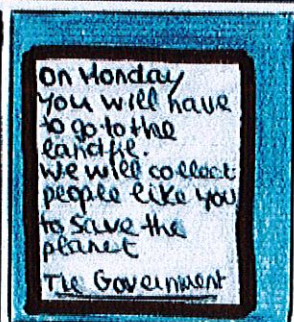 on Monday
you will have
to go to the
landfil.
we will collect
people like you
to save the
planet
The Government